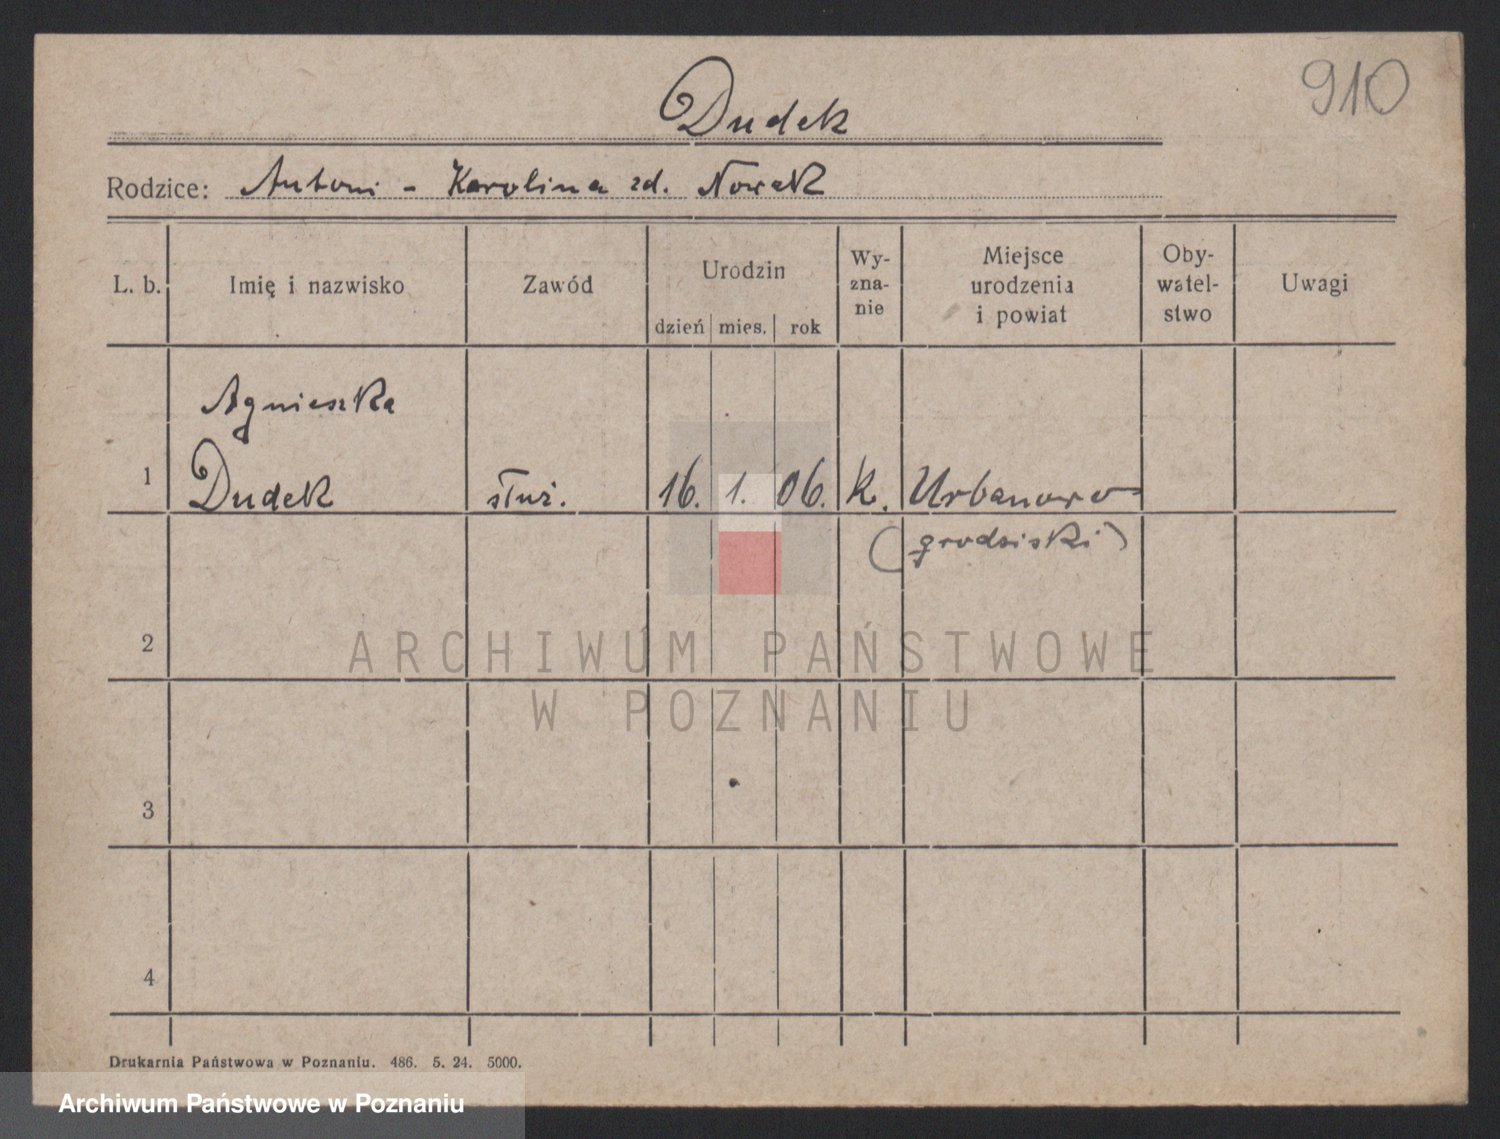 910
Dudek
Rodzice: Antoni - Karolina zd. Nowak
L. b. Imię i nazwisko Zawód Urodzin dzień mies. rok Wy-zna-nie Miejsce urodzenia i powiat Oby-watel-stwo Uwagi
Agnieszka
1 Dudek służ. 16. 1. 06. k. Urbanowo
(grodziski)
2
ARCHIWUM PAŃSTWOWE
W POZNANIU
3
4
Drukarnia Państwowa w Poznaniu. 486. 5. 24. 5000.
Archiwum Państwowe w Poznaniu